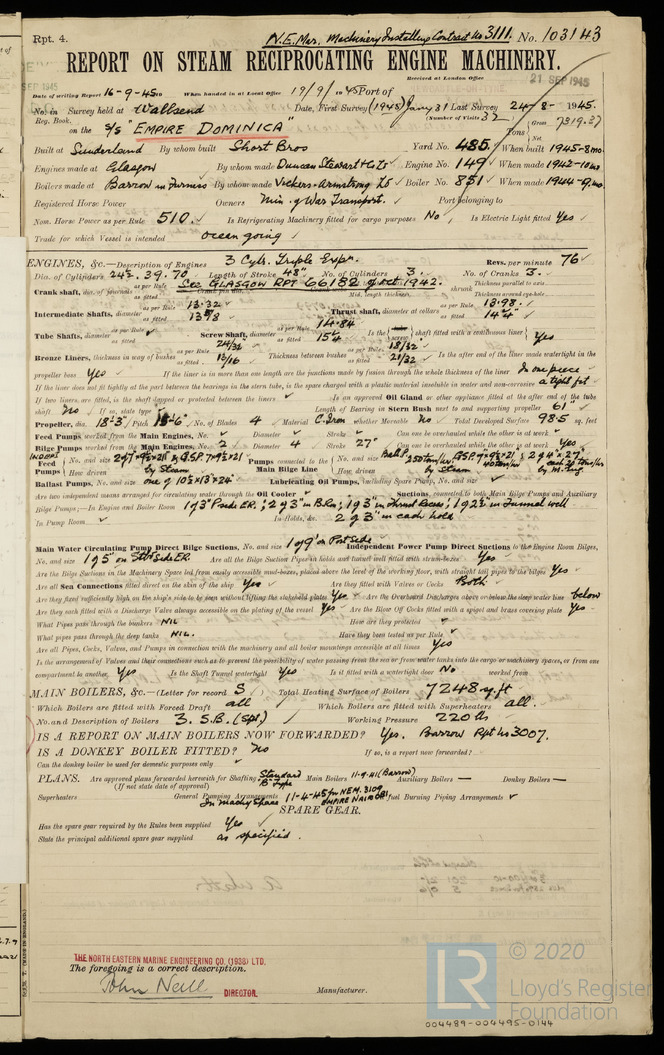 Rpt. 4. N.E. Mar. Machinery Installing Contract No 3111. No. 103143
REPORT ON STEAM RECIPROCATING ENGINE MACHINERY.
Received at London Office 21 SEP 1945
Date of writing Report 16-9-45 When handed in at Local Office 19/9/ 1945 Port of
No. in Survey held at Wallsend Date, First Survey (1945) Last Survey 24-8-1945.
Reg. Book. (Number of Visits 32
on the S/S "EMPIRE DOMINICA" Tons Gross 7319.37 Net
Built at Sunderland By whom built Short Bros Yard No. 485 When built 1945-8mo.
Engines made at Glasgow By whom made Duncan Stewart & Co Ld Engine No. 149 When made 1942-10mo
Boilers made at Barrow in Furness By whom made Vickers-Armstrong Ld Boiler No. 851 When made 1944-9mo.
Registered Horse Power Owners Min. of War Transport. Port belonging to
Nom. Horse Power as per Rule 510. Is Refrigerating Machinery fitted for cargo purposes No Is Electric Light fitted Yes
Trade for which Vessel is intended Ocean going
ENGINES, &c.—Description of Engines 3 Cyls. Triple Expn. Revs. per minute 76
Dia. of Cylinders 24½. 39. 70 Length of Stroke 48" No. of Cylinders 3. No. of Cranks 3.
Crank shaft, dia. of journals as per Rule as fitted See GLASGOW RPT 66182 of Oct 1942.
Intermediate Shafts, diameter as per Rule 13.32 as fitted 13 5/8 Thrust shaft, diameter at collars as per Rule 13.98 as fitted 14¼
Tube Shafts, diameter as per Rule as fitted Screw Shaft, diameter as per Rule 14.84 as fitted 15¼ Is the screw shaft fitted with a continuous liner Yes
Bronze Liners, thickness in way of bushes as per Rule 24/32 as fitted 13/16 Thickness between bushes as per Rule 18/32 as fitted 21/32 Is the after end of the liner made watertight in the
propeller boss Yes If the liner is in more than one length are the junctions made by fusion through the whole thickness of the liner In one piece
If the liner does not fit tightly at the part between the bearings in the stern tube, is the space charged with a plastic material insoluble in water and non-corrosive a tight fit
If two liners are fitted, is the shaft lapped or protected between the liners Is an approved Oil Gland or other appliance fitted at the after end of the tube
shaft No If so, state type Length of Bearing in Stern Bush next to and supporting propeller 61"
Propeller, dia. 18'3" Pitch 16'-6" No. of Blades 4 Material C. Iron whether Moveable No Total Developed Surface 98.5 sq. feet
Feed Pumps worked from the Main Engines, No. Diameter Stroke Can one be overhauled while the other is at work
Bilge Pumps worked from the Main Engines, No. 2 Diameter 4 Stroke 27" Can one be overhauled while the other is at work Yes
Feed Pumps No. and size How driven by Steam Pumps connected to the Main Bilge Line No. and size How driven by Steam
Ballast Pumps, No. and size one of 10½ x 13 x 24" Lubricating Oil Pumps, including Spare Pump, No. and size
Are two independent means arranged for circulating water through the Oil Cooler Suctions, connected to both Main Bilge Pumps and Auxiliary
Bilge Pumps;—In Engine and Boiler Room 1 of 3" P side ER.; 2 of 3" in B.Rm; 1 of 3" in Thrust Recess; 1 of 2½" in Tunnel well
In Pump Room In Holds, &c. 2 of 3" in each hold
Main Water Circulating Pump Direct Bilge Suctions, No. and size 1 of 9" on Port side Independent Power Pump Direct Suctions to the Engine Room Bilges,
No. and size 1 of 5" on Stbd side ER. Are all the Bilge Suction Pipes in holds and tunnel well fitted with strum-boxes Yes
Are the Bilge Suctions in the Machinery Space led from easily accessible mud-boxes, placed above the level of the working floor, with straight tail pipes to the bilges Yes
Are all Sea Connections fitted direct on the skin of the ship Yes Are they fitted with Valves or Cocks Both
Are they fixed sufficiently high on the ship's side to be seen without lifting the stokehold plates Yes Are the Overboard Discharges above or below the deep water line below
Are they each fitted with a Discharge Valve always accessible on the plating of the vessel Yes Are the Blow Off Cocks fitted with a spigot and brass covering plate Yes
What Pipes pass through the bunkers NIL How are they protected
What pipes pass through the deep tanks NIL. Have they been tested as per Rule
Are all Pipes, Cocks, Valves, and Pumps in connection with the machinery and all boiler mountings accessible at all times Yes
Is the arrangement of Valves and their connections such as to prevent the possibility of water passing from the sea or from water tanks into the cargo or machinery spaces, or from one
compartment to another Yes Is the Shaft Tunnel watertight Yes Is it fitted with a watertight door No worked from
MAIN BOILERS, &c.—(Letter for record S) Total Heating Surface of Boilers 7248 sq. ft
Which Boilers are fitted with Forced Draft all Which Boilers are fitted with Superheaters all.
No. and Description of Boilers 3. S.B. (Spt) Working Pressure 220 lbs
IS A REPORT ON MAIN BOILERS NOW FORWARDED? Yes. Barrow Rpt No 3007.
IS A DONKEY BOILER FITTED? No If so, is a report now forwarded?
Can the donkey boiler be used for domestic purposes only
PLANS. Are approved plans forwarded herewith for Shafting Standard "B" Type Main Boilers 11-9-41 (Barrow) Auxiliary Boilers — Donkey Boilers —
(If not state date of approval)
Superheaters General Pumping Arrangements In machy space 11-4-45 for NEM. 3109 EMPIRE NAIROBI Oil fuel Burning Piping Arrangements
SPARE GEAR.
Has the spare gear required by the Rules been supplied Yes
State the principal additional spare gear supplied as specified.
THE NORTH EASTERN MARINE ENGINEERING CO. (1938) LTD.
The foregoing is a correct description.
John Neill DIRECTOR. Manufacturer.
© 2020
LR Lloyd's Register
Foundation
004489-004495-0144